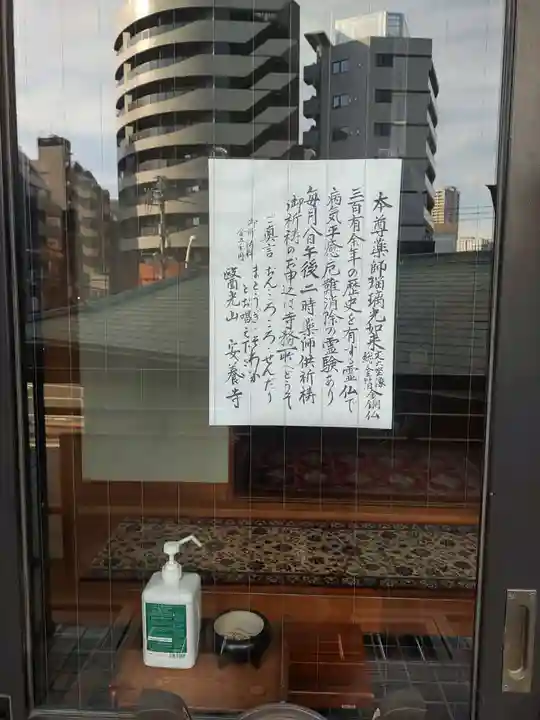 本尊薬師瑠璃光如来 丈六坐像
総金箔金銅仏
三百有余年の歴史を有する霊仏で
病気平癒厄難消除の霊験あり
毎月八日午後二時薬師供祈祷
御祈祷のお申込は寺務所へどうぞ
御祈祷料
ご真言 おんころころせんだり
まとうぎそわか
とお唱え下さい
醫光山 安養寺